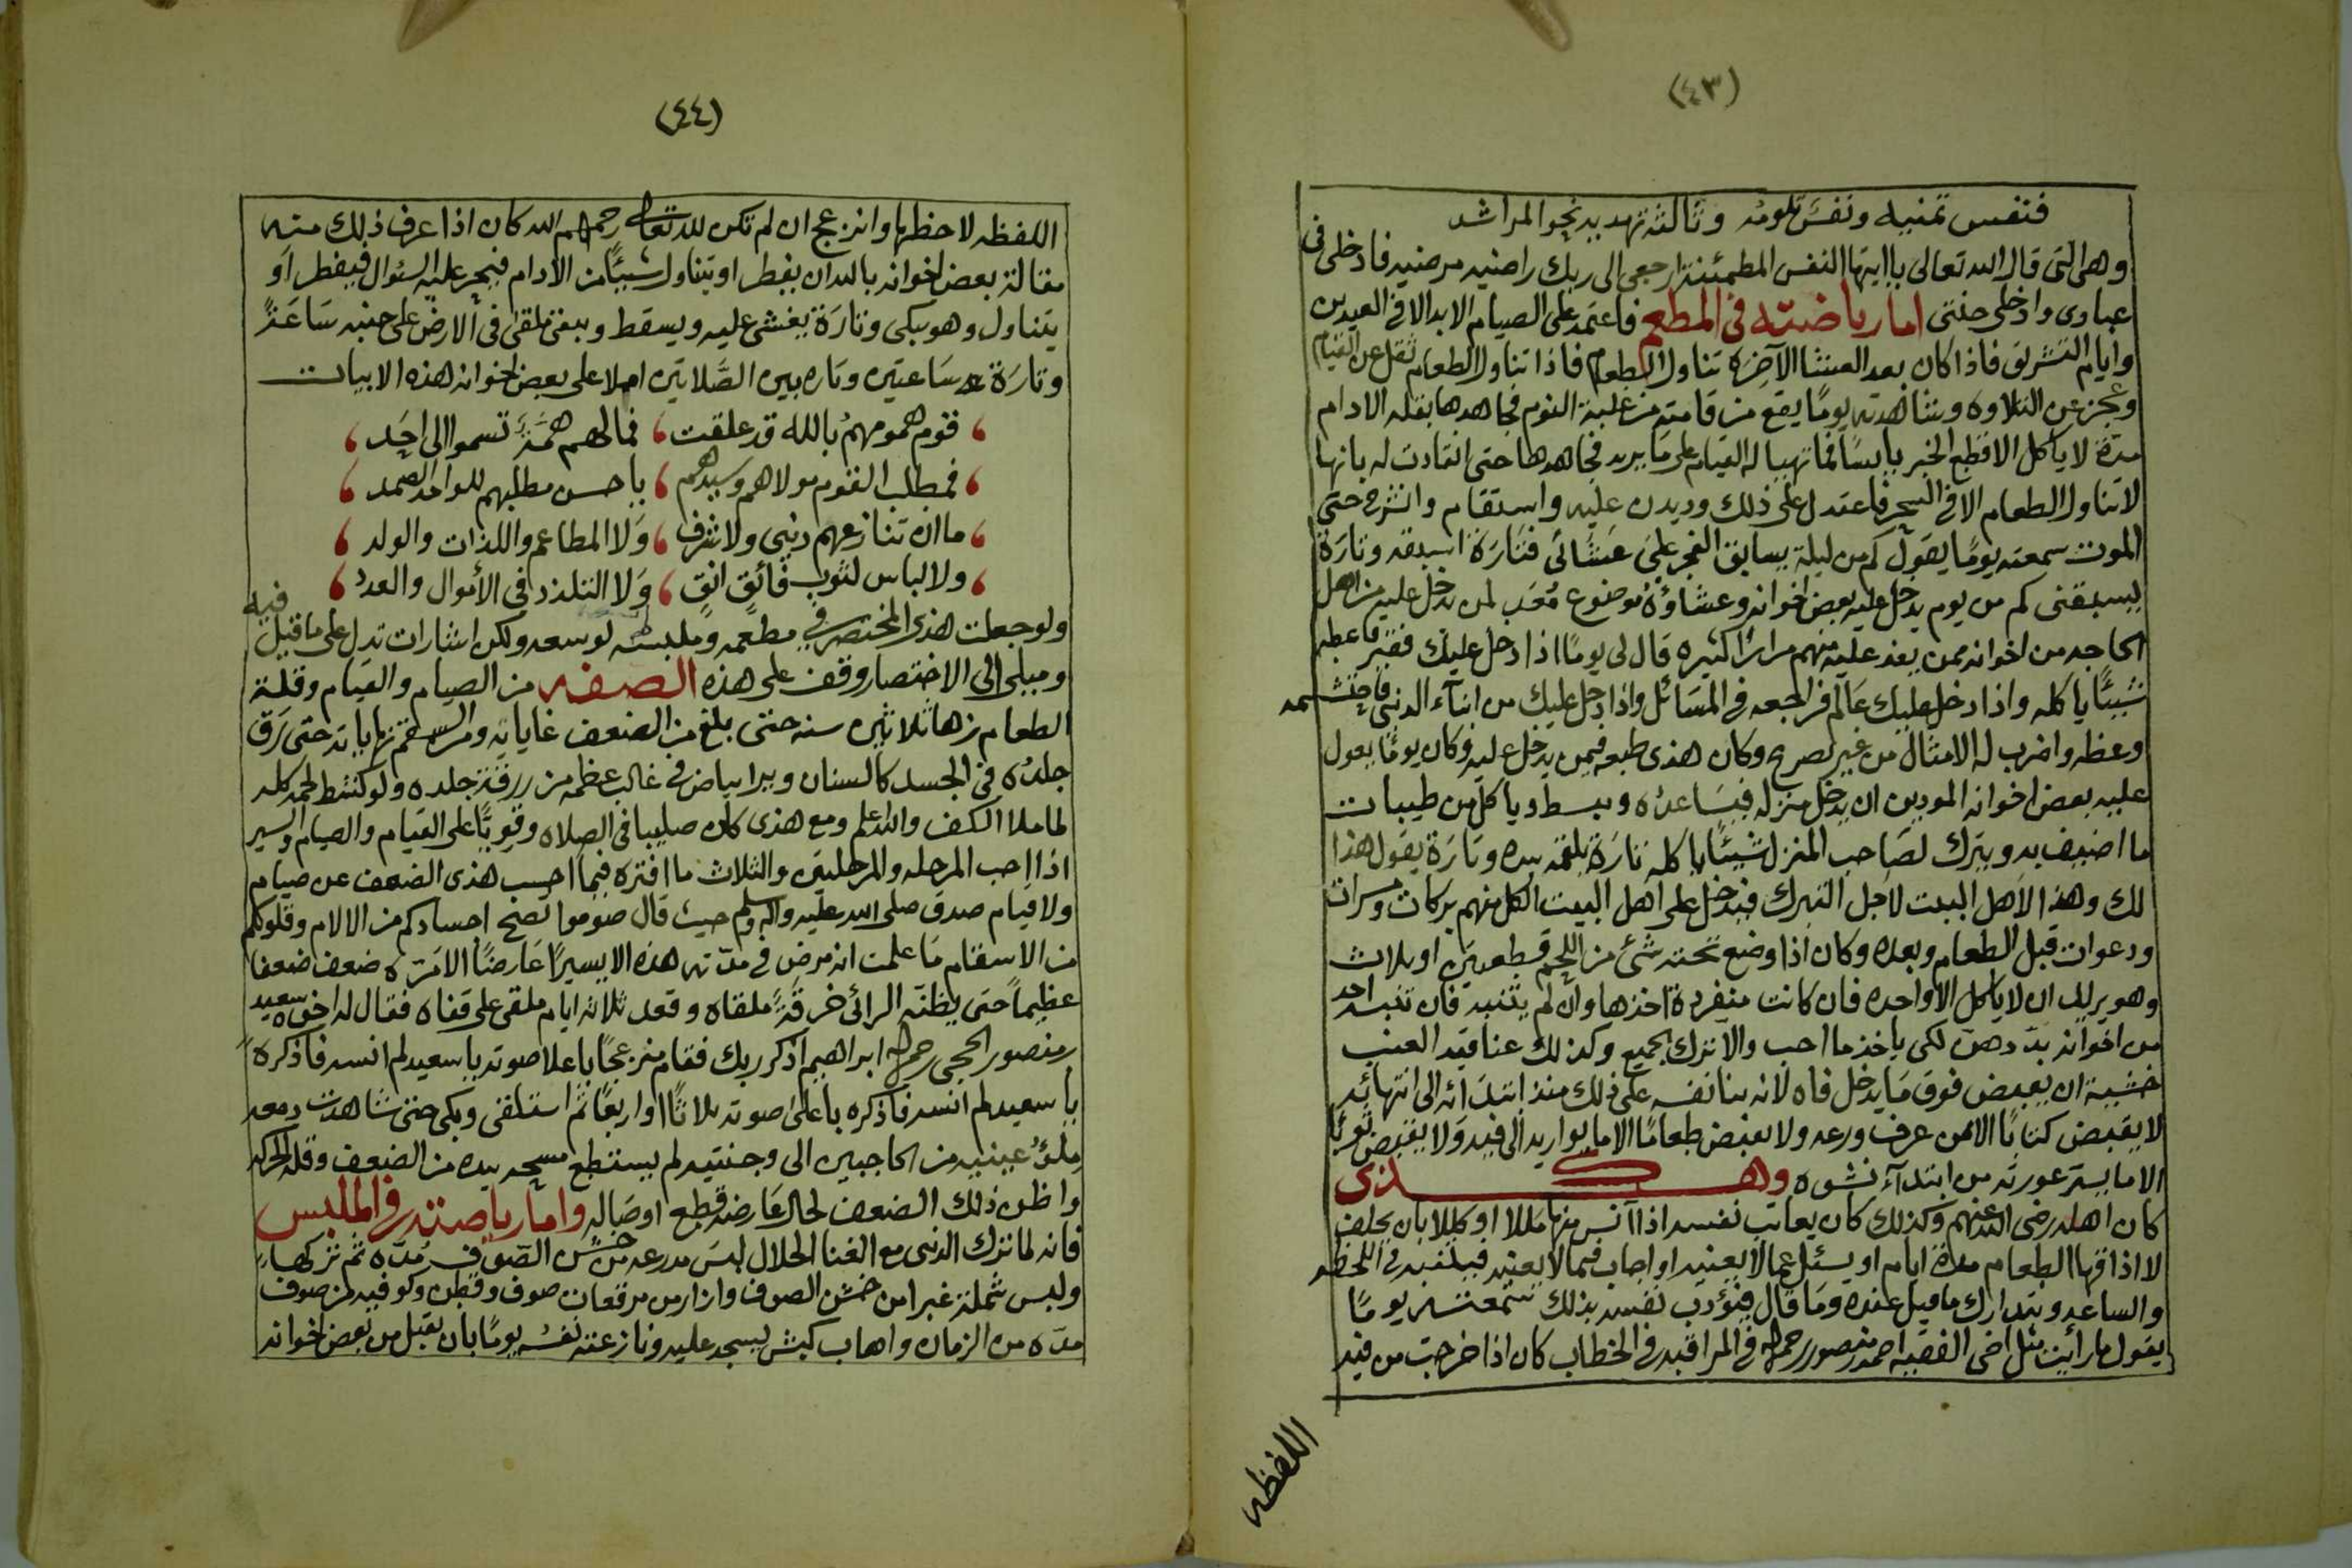 (٤٣)
فنفس تمنيه ونفس تلومه وثالثة تهديه نحو المراشد
وهى التى قال الله تعالى ياايتها النفس المطمئنة ارجعى الى ربك راضيه مرضيه فادخلى فى
عبادى وادخلى جنتى اما رياضته فى المطعم فاعتمد على الصيام الابد الا فى العيدين
وايام التشريق فاذا كان بعد العشا الآخره تناول الطعام فاذا تناول الطعام ثقل عن القيام
وعجز عن التلاوه وشاهدته يومًا يقع من قامته من غلبة النوم فجاهدها بقله الادام
مدة لا ياكل الا قطع الخبز يابسًا فما تهيا له القيام على ما يريد فجاهدها حتى انقادت له بانها
لا تناول الطعام الا فى السحر فاعتدل على ذلك وديدن عليه واستقام وانشرح حتى
الموت سمعته يومًا يقول كم من ليلة يسابق الفجر على عشائى فتارة اسبقه وتارة
يسبقنى كم من يوم يدخل عليه بعض اخوانه وعشاؤه موضوع مُعَد لمن يدخل عليه من اهل
الحاجه من اخوانه ممن يفد عليه منهم مرارًا كثيره قال لى يومًا اذا دخل عليك فقير فاعطه
شيئًا ياكله واذا دخل عليك عالم فراجعه فى المسَائل واذا دخل عليك من ابناء الدنيا فاحتشمه
وعظه واضرب له الامثال من غير تصريح وكان هذى طبعه فيمن يدخل عليه وكان يومًا يعول
عليه بعض اخوانه المودين ان يدخل منزله فيسَاعده ويبسط وياكل من طيبات
ما اضيف به ويترك لصَاحب المنزل شيئًا ياكله تارة يلقمه بيده وتارة يقول هذا
لك وهذا لاهل البيت لاجل التبرك فيدخل على اهل البيت الكل منهم بركات ومسرات
ودعوات قبل الطعام وبعده وكان اذا وضع تحته شئ من اللحم قطعتين او ثلاث
وهو يريد ان لا ياكل الا واحده فان كانت منفردة اخذها وان لم يتنبه فان تنبه احد
من اخوانه بدّدهن لكى ياخذ ما احب والا ترك الجميع وكذلك عناقيد العنب
خشية ان يقبض فوق مَا يدخل فاه لانه بنا نفسه على ذلك منذ ابتدائه الى انتهائه
لا يقبض كتابًا الا ممن عرف ورعه ولا يقبض طعامًا الا ما يواريه الى فيه ولا يقبض ثوبًا
الا ما يستر عورته من ابتداء نشوه وهكذى
كان اهله رضى الله عنهم وكذلك كان يعاتب نفسه اذا آنس منها مَللا او كللا بان يحلف
لا اذاقها الطعام مدة ايام او يسئل عما لا يعنيه او اجاب فيما لا يعنيه فيلتفت فى اللحظه
والساعه ويتدارك ما قيل عنده ومَا قال فيؤدب نفسه بذلك سمعته يومًا
يقول ما رأيت مثل اخى الفقيه احمد منصور رحمه الله فى المراقبه فى الخطاب كان اذا خرجت من فيه
اللفظه
(٤٤)
اللفظه لاحظها وانزعج ان لم تكن لله تعالى رحمهم الله كان اذا عرف ذلك منه
مقالة بعض اخوانه بالله ان يفطر او يتناول شيئًا من الادام فيجرّ عليه السئوال فيفطر اَو
يتناول وهو يبكى وتارَة يغشى عليه ويسقط ويبقى ملقى فى الارض على جنبه سَاعَةً
وتارَة سَاعتين وتاره بين الصَّلاتين املا على بعض اخوانه هذه الابيات
قوم همومهمُ بالله قد علقت فما لهم همّةٌ تسموا الى احَد
فمطلب القوم مولاهم وسيدهم ياحسن مطلبهم للواحد الصمد
ما ان تنازعهم دنيى ولا شرف وَلا المطاعم واللذات والولد
ولا لباس لثوبٍ فائقٍ انقٍ وَلا التلذذ فى الأموال والعدد
ولو جعلت هذى المختصر فى مطعمه وملبسه لوسعه ولكن اشارات تدل على ما قيل فيه
وميلى الى الاختصار وقف على هذه الصفه من الصيام والقيام وقلة
الطعام زها ثلاثين سنه حتى بلغ من الضعف غاياته ومن السقم نهاياته حتى رَق
جلدُه فى الجسد كالسنان ويرا بياض فى غالب عظمه من ررقة جلده ولو كشط لحمه كله
لما ملا الكف والله اعلم ومع هذى كان صليبا فى الصلاه وقويًّا على القيام والصيام والسير
اذا احب المرحله والمرحلتين والثلاث ما افتره فيما احسب هذى الضعف عن صيام
ولا قيام صدق صلى الله عليه واله وسلم حيث قال صوموا تصح اجسادكم من الالام وقلوبكم
من الاسقام مَا علمت انه مرض فى مدّته هذه الا يسيرًا عَارضًا الا مَرّه ضعف ضعفا
عظيماً حتى يظنّه الرائى خرقةً ملقاه وقعد ثلاثه ايام ملقى على قفاه فقال له اخوه سعيد
منصور الحجى رحمه الله ابراهيم اذكر ربك فقام منزعجًا باعلا صوته ياسعيد لم انسه فاذكره
ياسعيد لم انسه فاذكره باعلى صوته ثلاثًا او اربعًا ثم استلقى وبكى حتى شاهدت دمعه
ملؤ عينيه من الحاجبين الى وجنتيه لم يستطع مسحه بيده من الضعف وقلة الحركه
واظن ذلك الضعف لحال عَارضه قطع اوصَاله واما رياضته فى الملبس
فانه لما ترك الدنيى مع الغنا الحلال لبسَ مدرعه من خشن الصّوف مُدّه ثم تركها
ولبس شملة غبرا من خشن الصوف وازار من مرقعات صوف وقطن وكوفيه من صوف
مدّه من الزمان واهاب كبش ليسجد عليه ونازعته نفسُه يومًا بان يقبل من بعض اخوانه